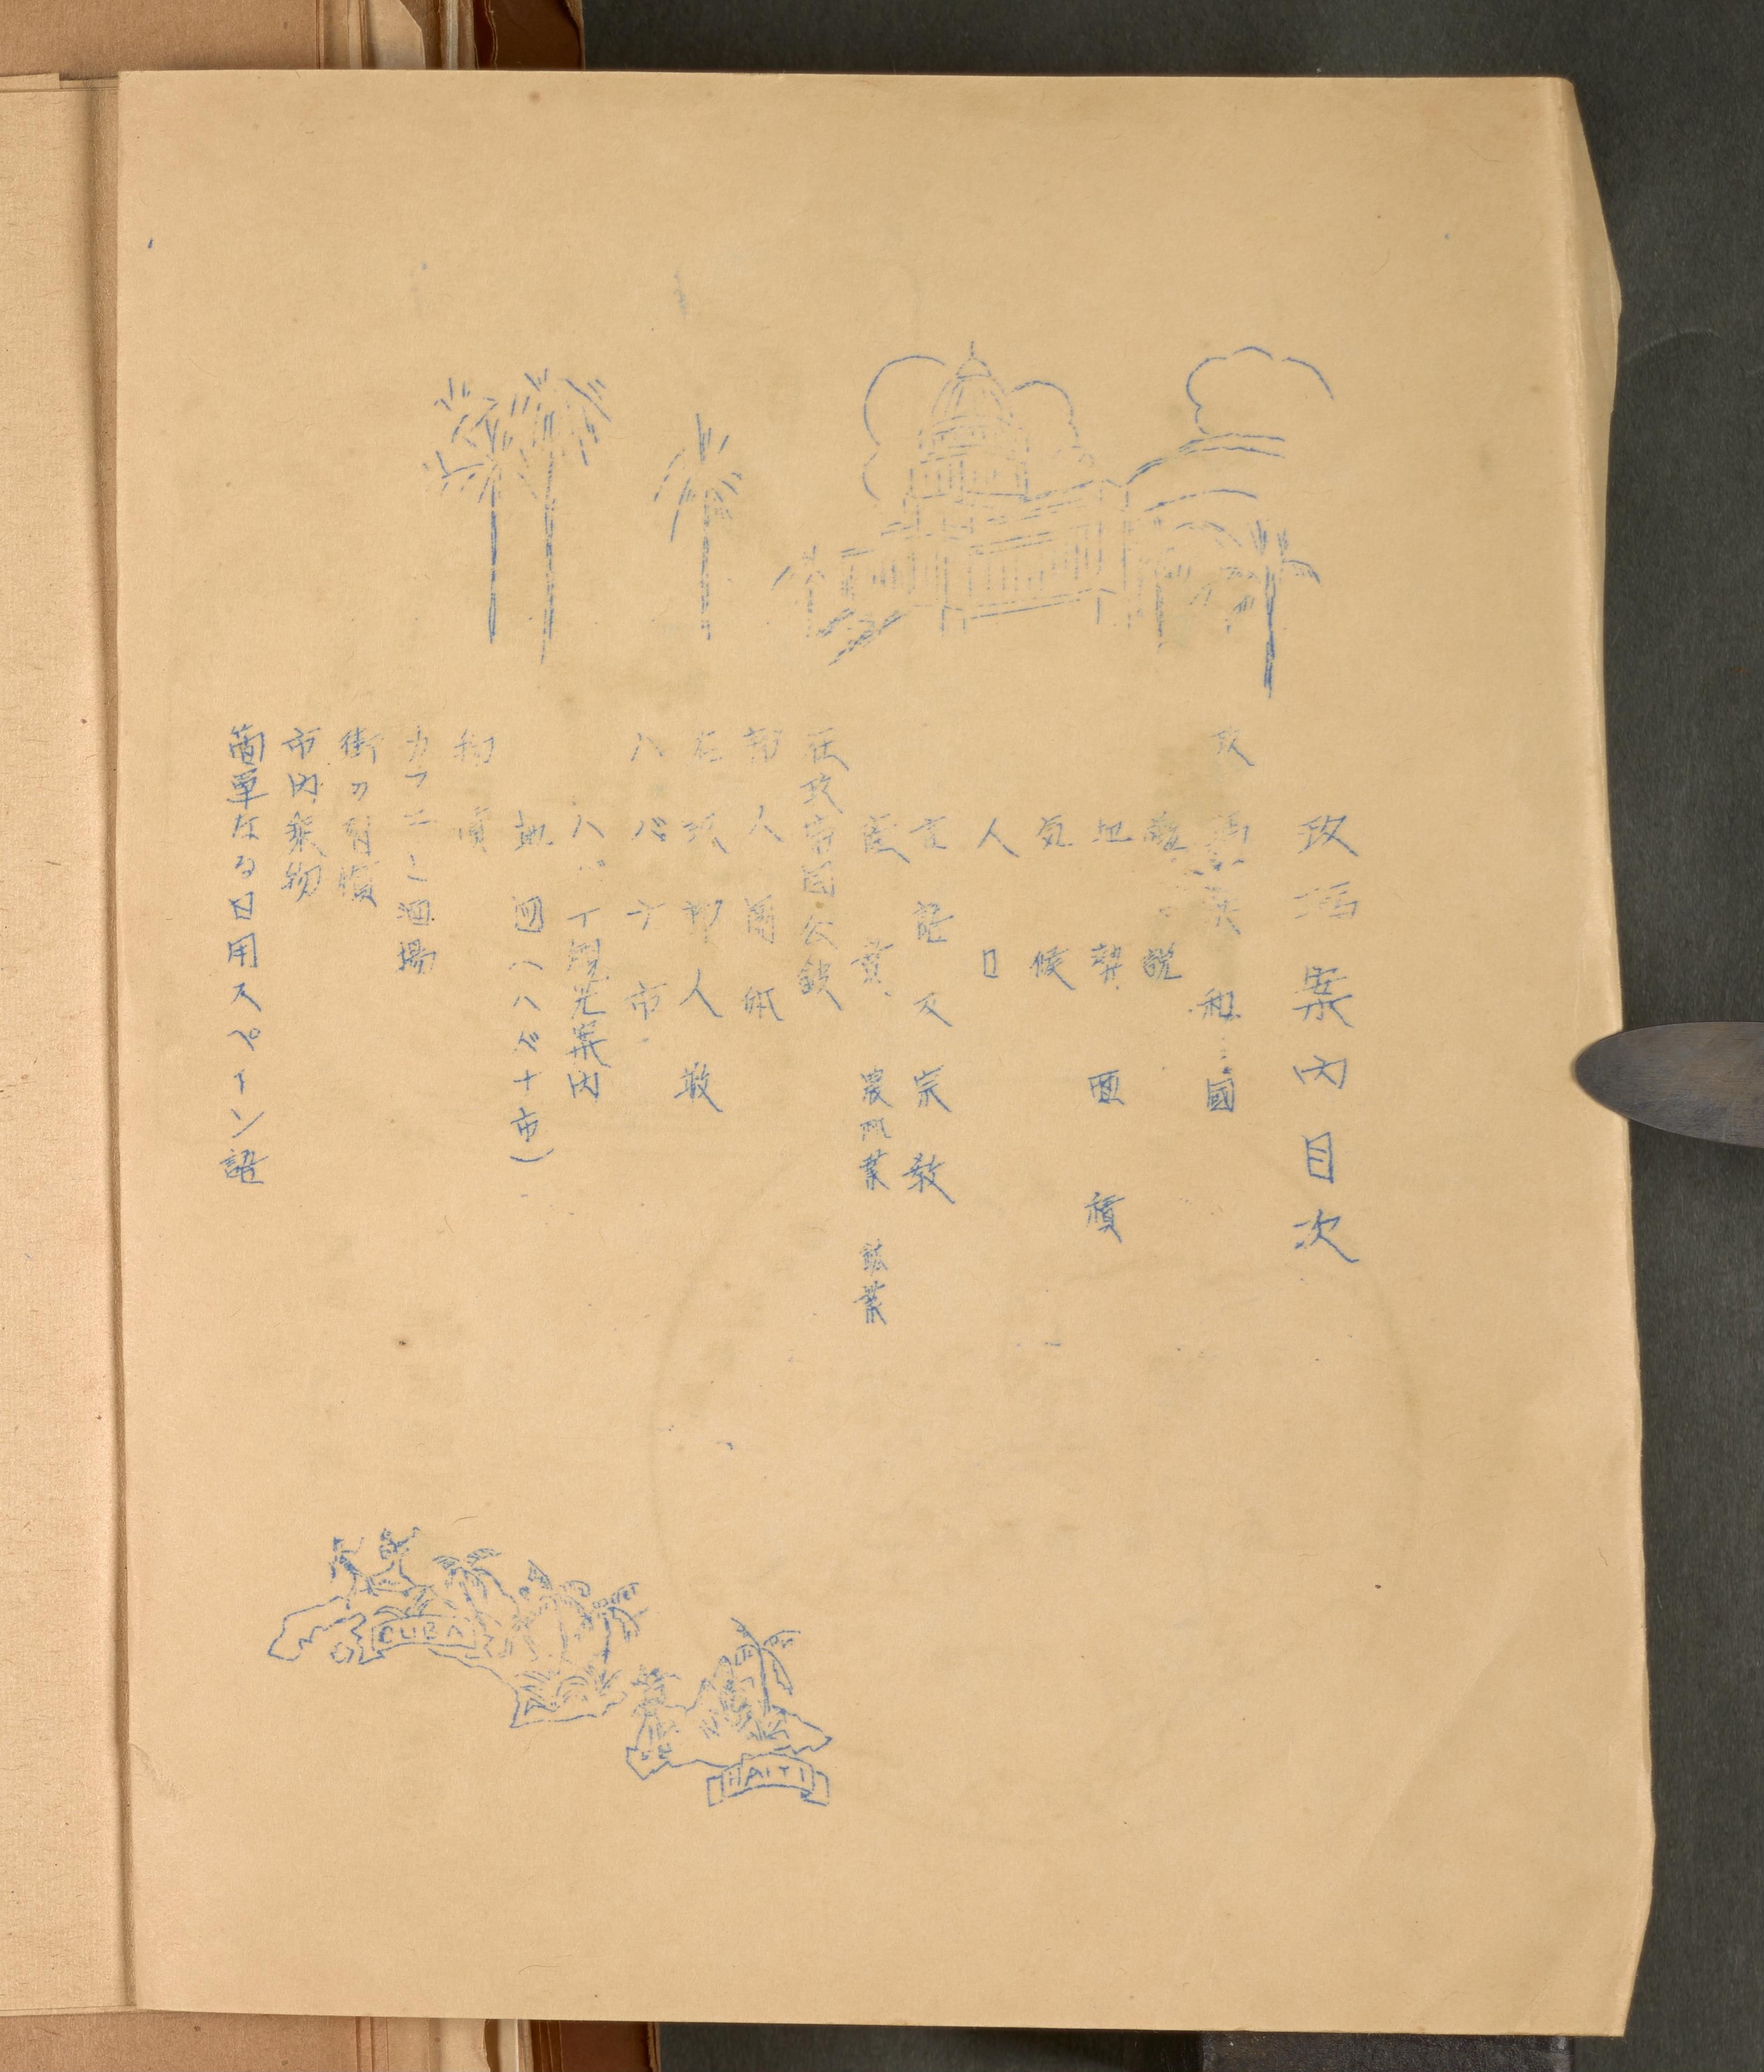 玖瑪案内目次
玖瑪共和國
概説
地勢面積
気候
人口
言語及宗教
産業 農業 鉱業
在玖帝国公館
邦人團体
在玖邦人数
ハバナ市
ハバナ観光案内
地図(ハバナ市)
物價
カフエー酒場
街の習慣
市内乗物
箇単なる日用スペイン語
CUBA
HAITI